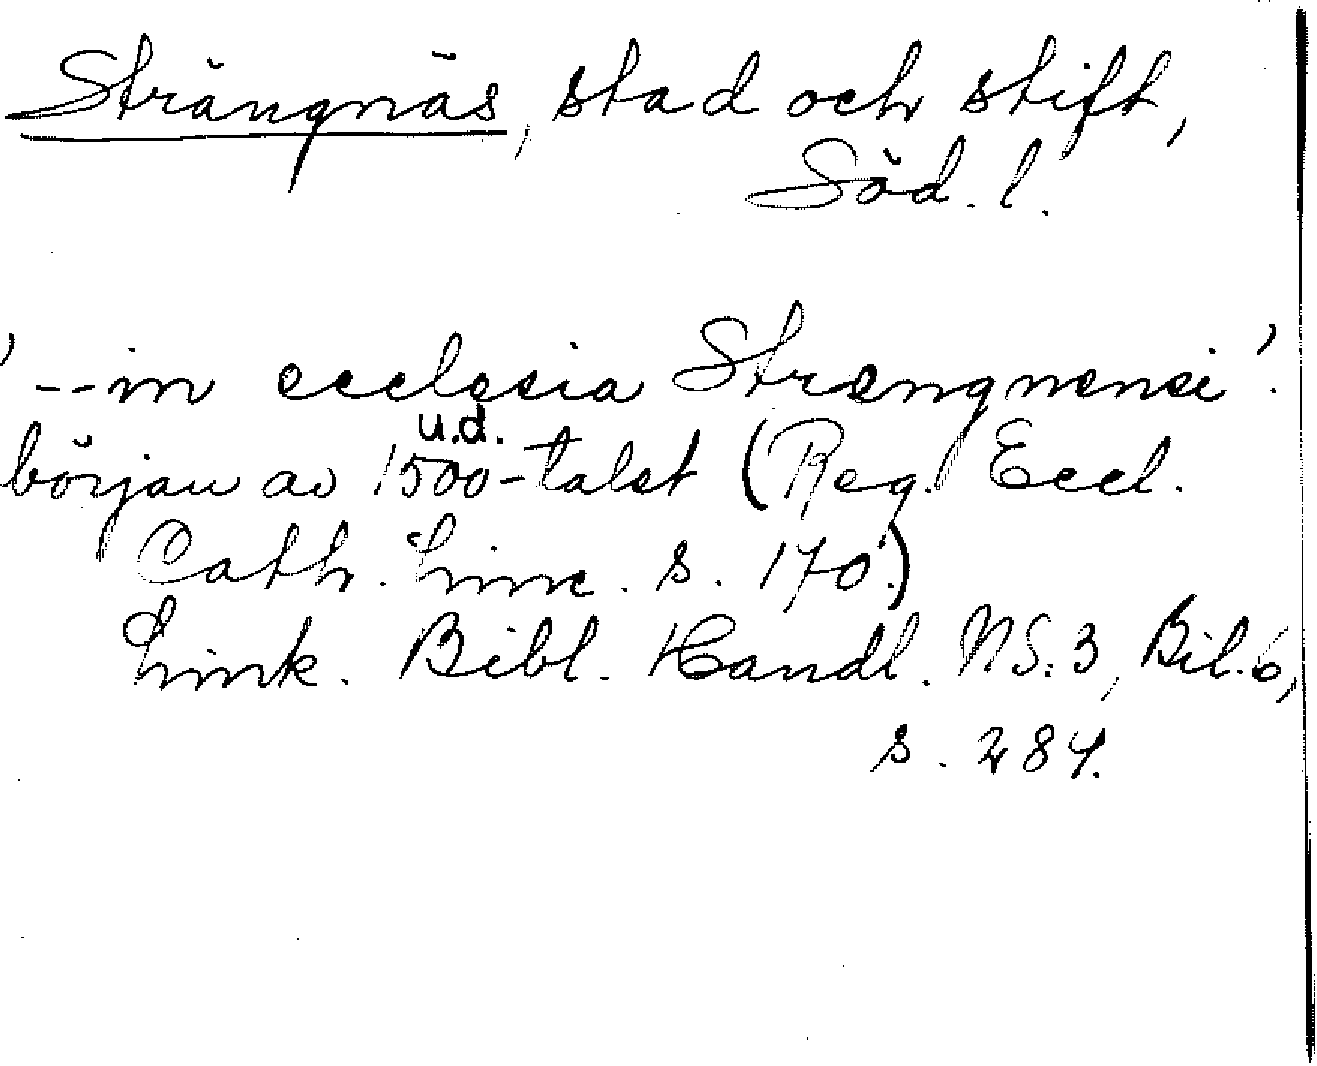 Strängnäs, stad och stift,
Söd. l.
'--in ecclesia Strengnensi'.
u.d.
början av 1500-talet (Reg. Eccl.
Cath. Linc. s. 170.)
Link. Bibl. Handl. NS. 3, Bil. 6,
s. 284.